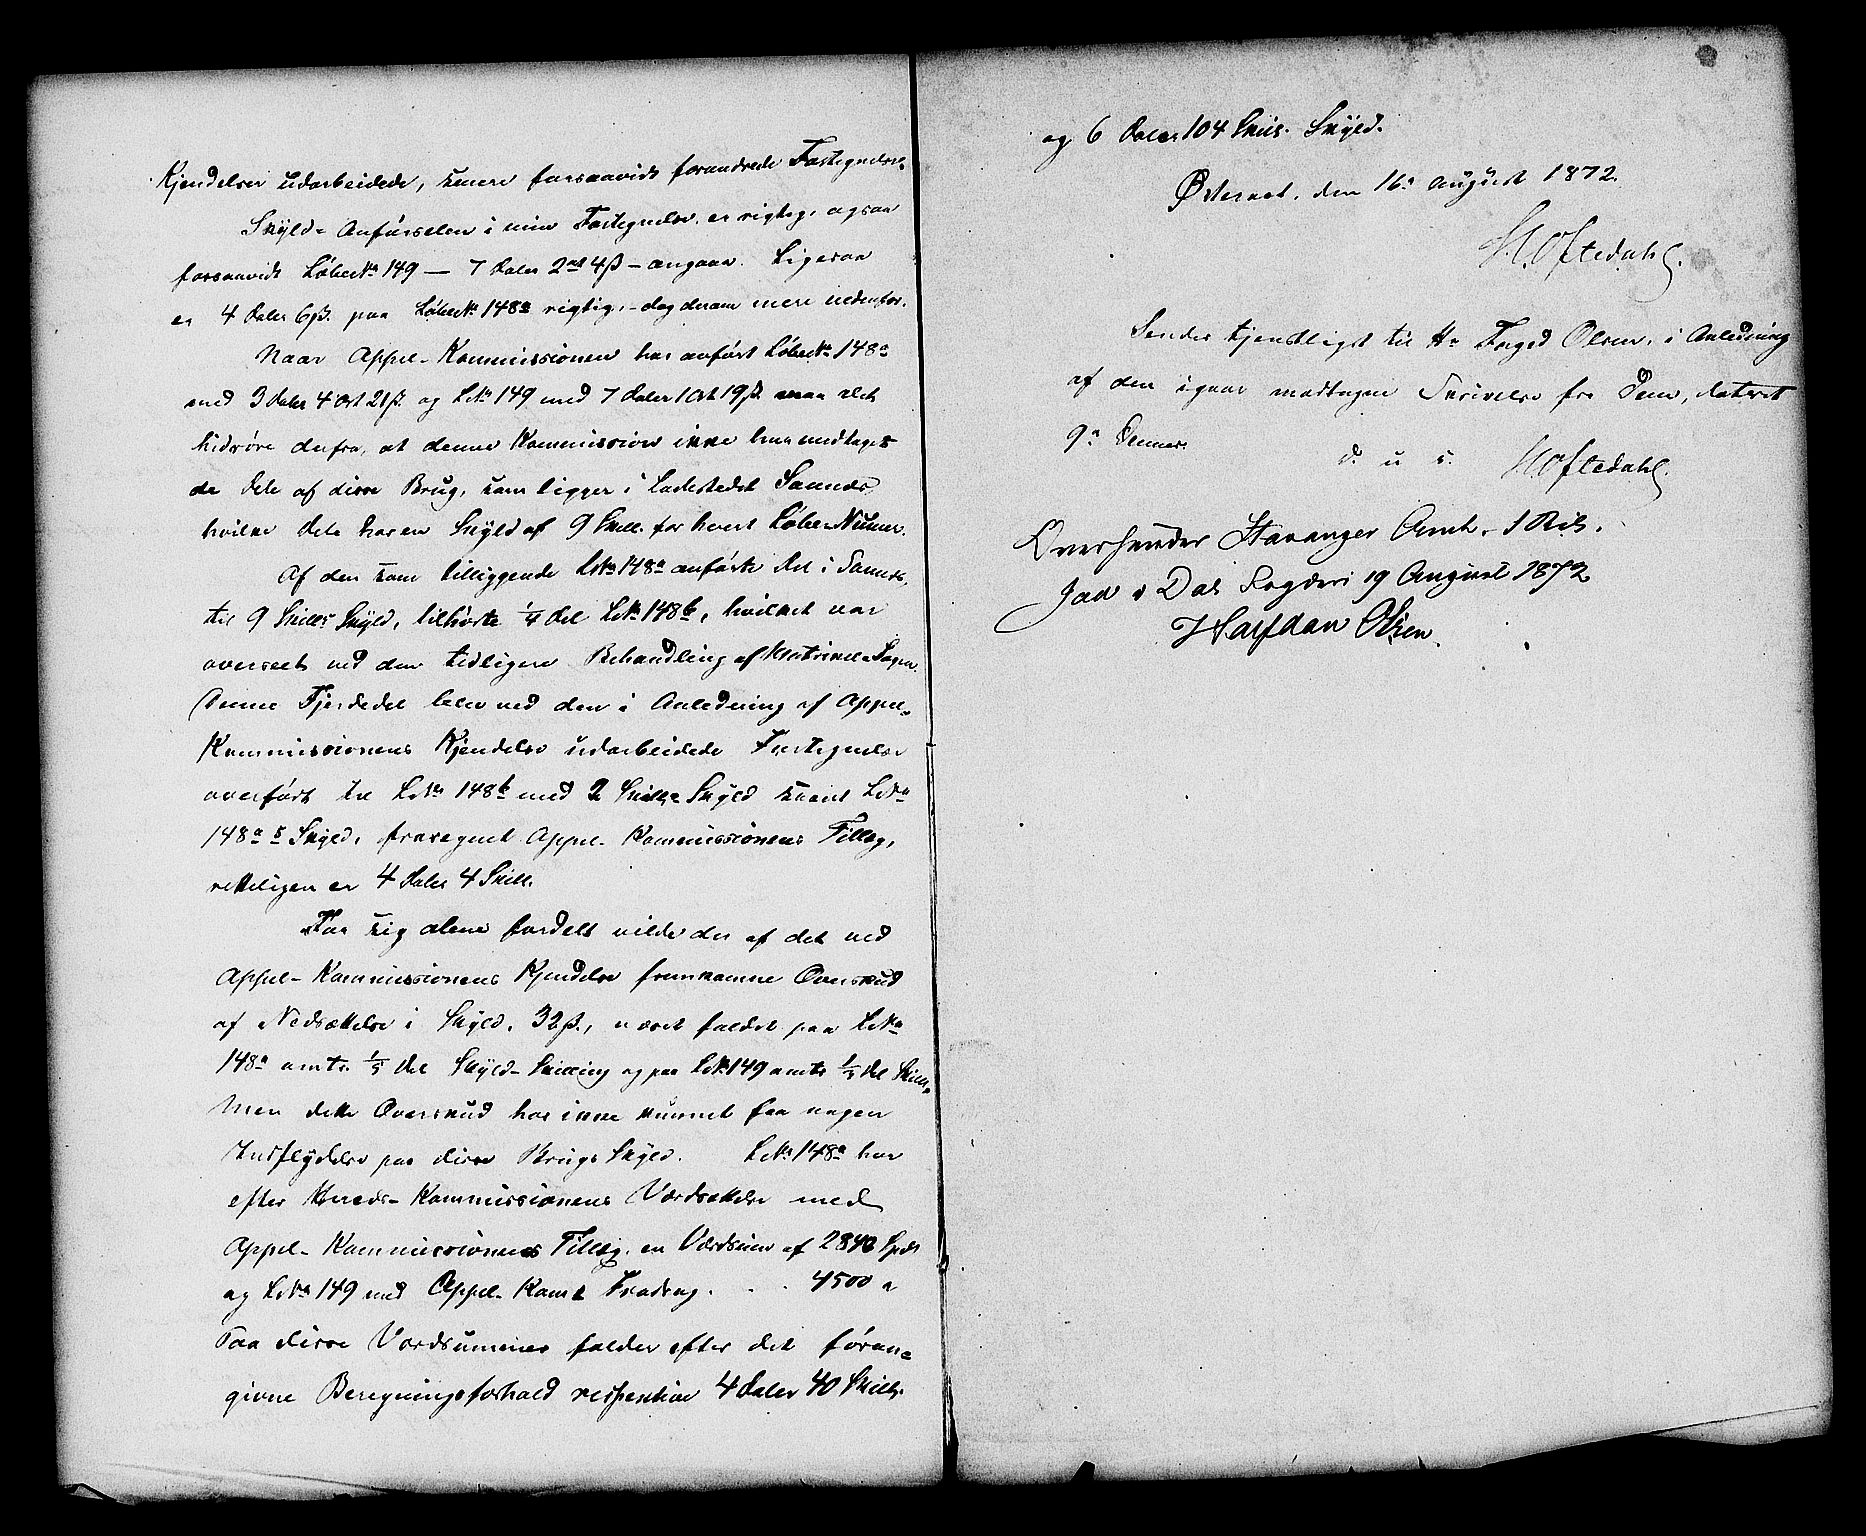 Kjendelser udarbeidede, senere forsaavidt forandrede Fortegnelse.
Skyld-Anførselen i min Fortegnelse er rigtig, ogsaa
forsaavidt Løbe No 149 — 7 Daler 2 ort 4 ß — angaar. Ligesaa
er 4 Daler 6 ß. paa Løbe No 148a rigtig, - dog derom mere nedenfor.
Naar Appel-Kommissionen har anført Løbe No 148a
med 3 Daler 4 Ort 21 ß. og L No 149 med 7 Daler 1 Ort 19 ß. maa det
hidrøre derfra, at denne Kommission ikke har medtaget
de Dele af disse Brug, som ligger i Ladestedet Sannes,
hvilke Dele har en Skyld af 9 Skill. for hvert Løbe-Numer.
Af den som tilliggende L No 148a anførte Del i Sannes,
til 9 Skills Skyld, tilhørte 1/4 Del L No 148b, hvilket var
overseet ved den tidligere Behandling af Matrikel-Sagen.
Denne Fjerdedel blev ved den i Anledning af Appel-
Kommissionens Kjendelse udarbeidede Fortegnelse
overført til L No 148b med 2 Skill- Skyld saa at L No
148a s Skyld, fraregnet Appel-Kommissionens Tillæg,
retteligen er 4 Daler 4 Skill.
For sig alene fordelt vilde der af det ved
Appel-Kommissionens Kjendelse fremkomne Overskud
af Nedsættelse i Skyld, 32 ß., været faldet paa L No
148a omtr. 1/5 Del Skyld-Skilling og paa L No 149 omtr 1/3 Del Skill-
Men dette Overskud har ikke kunnet faa nogen
Indflydelse paa disse Brugs Skyld. L No 148a har
efter Hereds-Kommissionens Værdsættelse med
Appel-Kommissionens Tillæg, en Værdsum af 2840 Spdr
og L No 149 med Appel-Koms Fradrag . . . 4500 "
Paa disse Værdsummer falder efter det føran-
givne Beregningsforhold respektive 4 Daler 40 Skill.
og 6 Daler 104 Skill. Skyld.
Østeraat, den 16 August 1872.
H. Oftedahl.
Sendes tjenstligst til Hr Foged Olsen, i Anledning
af den igaar modtagne Skrivelse fra Dem, dateret
9 Dennes.
d. u s. H Oftedahl.
Oversendes Stavanger Amt.
Jæd. & Dal. Fogderi 19 August 1872
Halfdan Olsen.